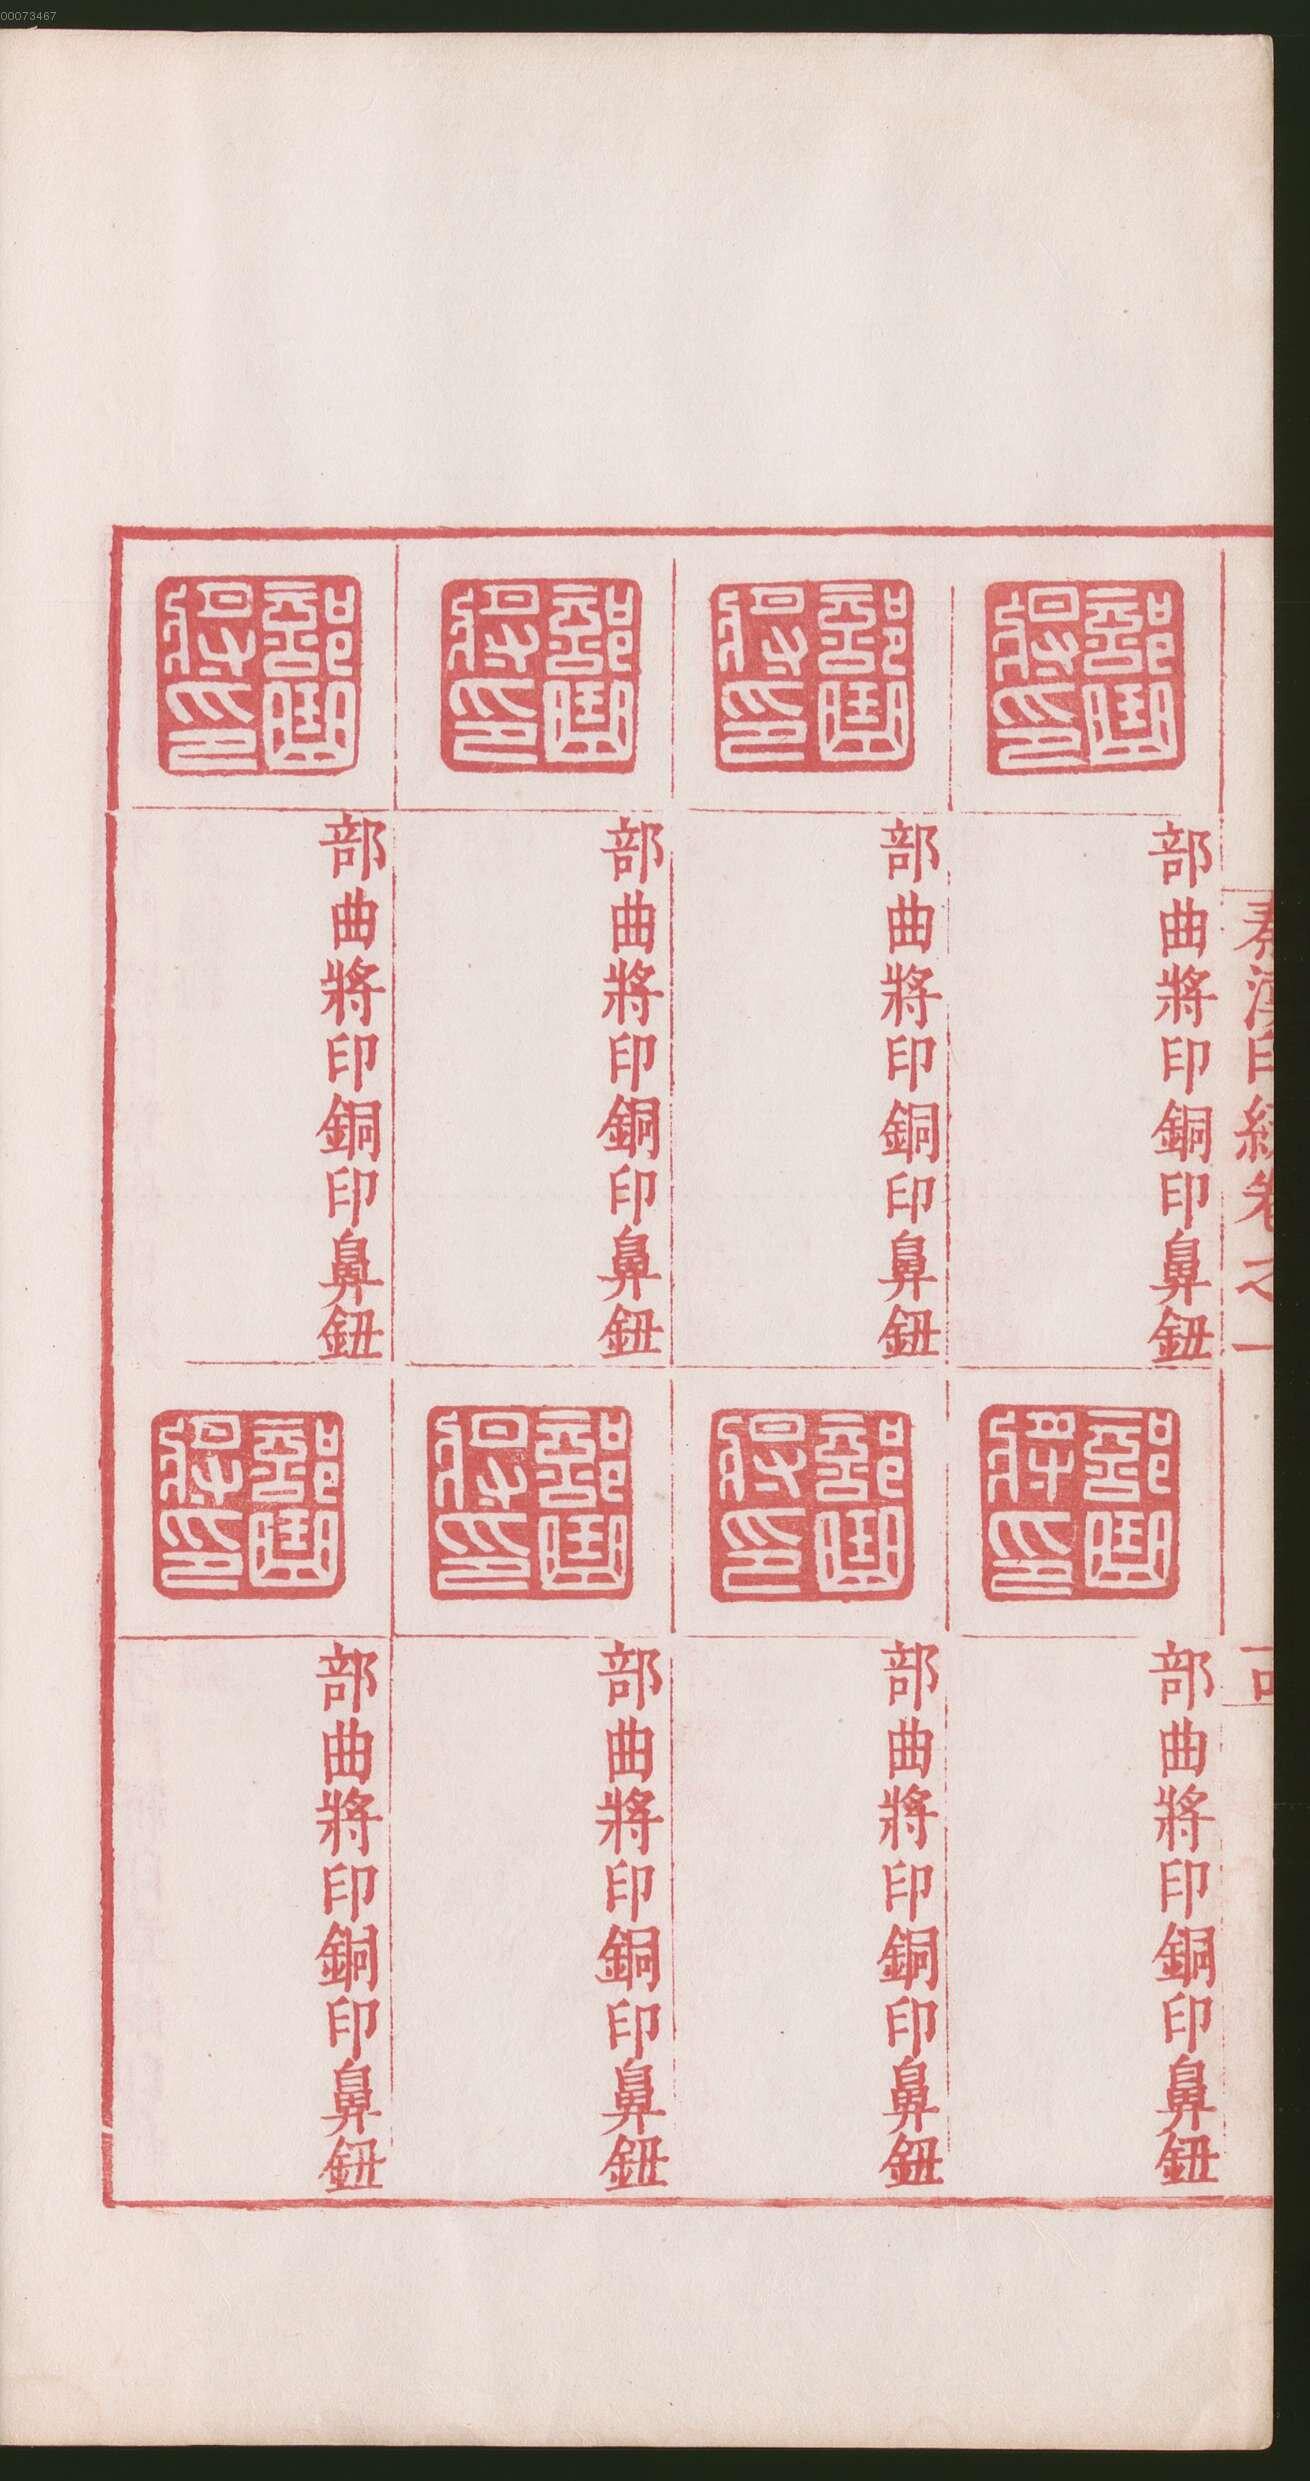 00073467
秦漢印統卷之一
部曲將印
部曲將印銅印鼻鈕
部曲將印
部曲將印銅印鼻鈕
部曲將印
部曲將印銅印鼻鈕
部曲將印
部曲將印銅印鼻鈕
部曲將印
部曲將印銅印鼻鈕
部曲將印
部曲將印銅印鼻鈕
部曲將印
部曲將印銅印鼻鈕
部曲將印
部曲將印銅印鼻鈕